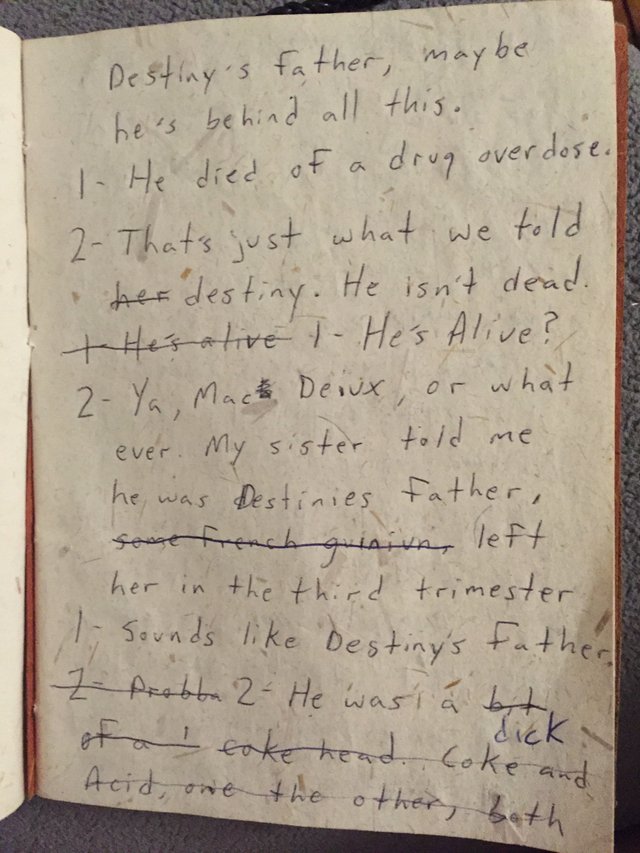 Destiny's Father, maybe
he's behind all this.
1- He died of a drug overdose.
2- That's just what we told
her destiny. He isn't dead.
1- He's alive 1- He's Alive?
2- Ya, Mac Deiux, or what
ever. My sister told me
he was Destinies Father,
some French guiniun, left
her in the third trimester
1- Sounds like Destiny's Father.
2- Probba 2- He was a bit
dick
of a coke head. Coke and
Acid, one the other, both